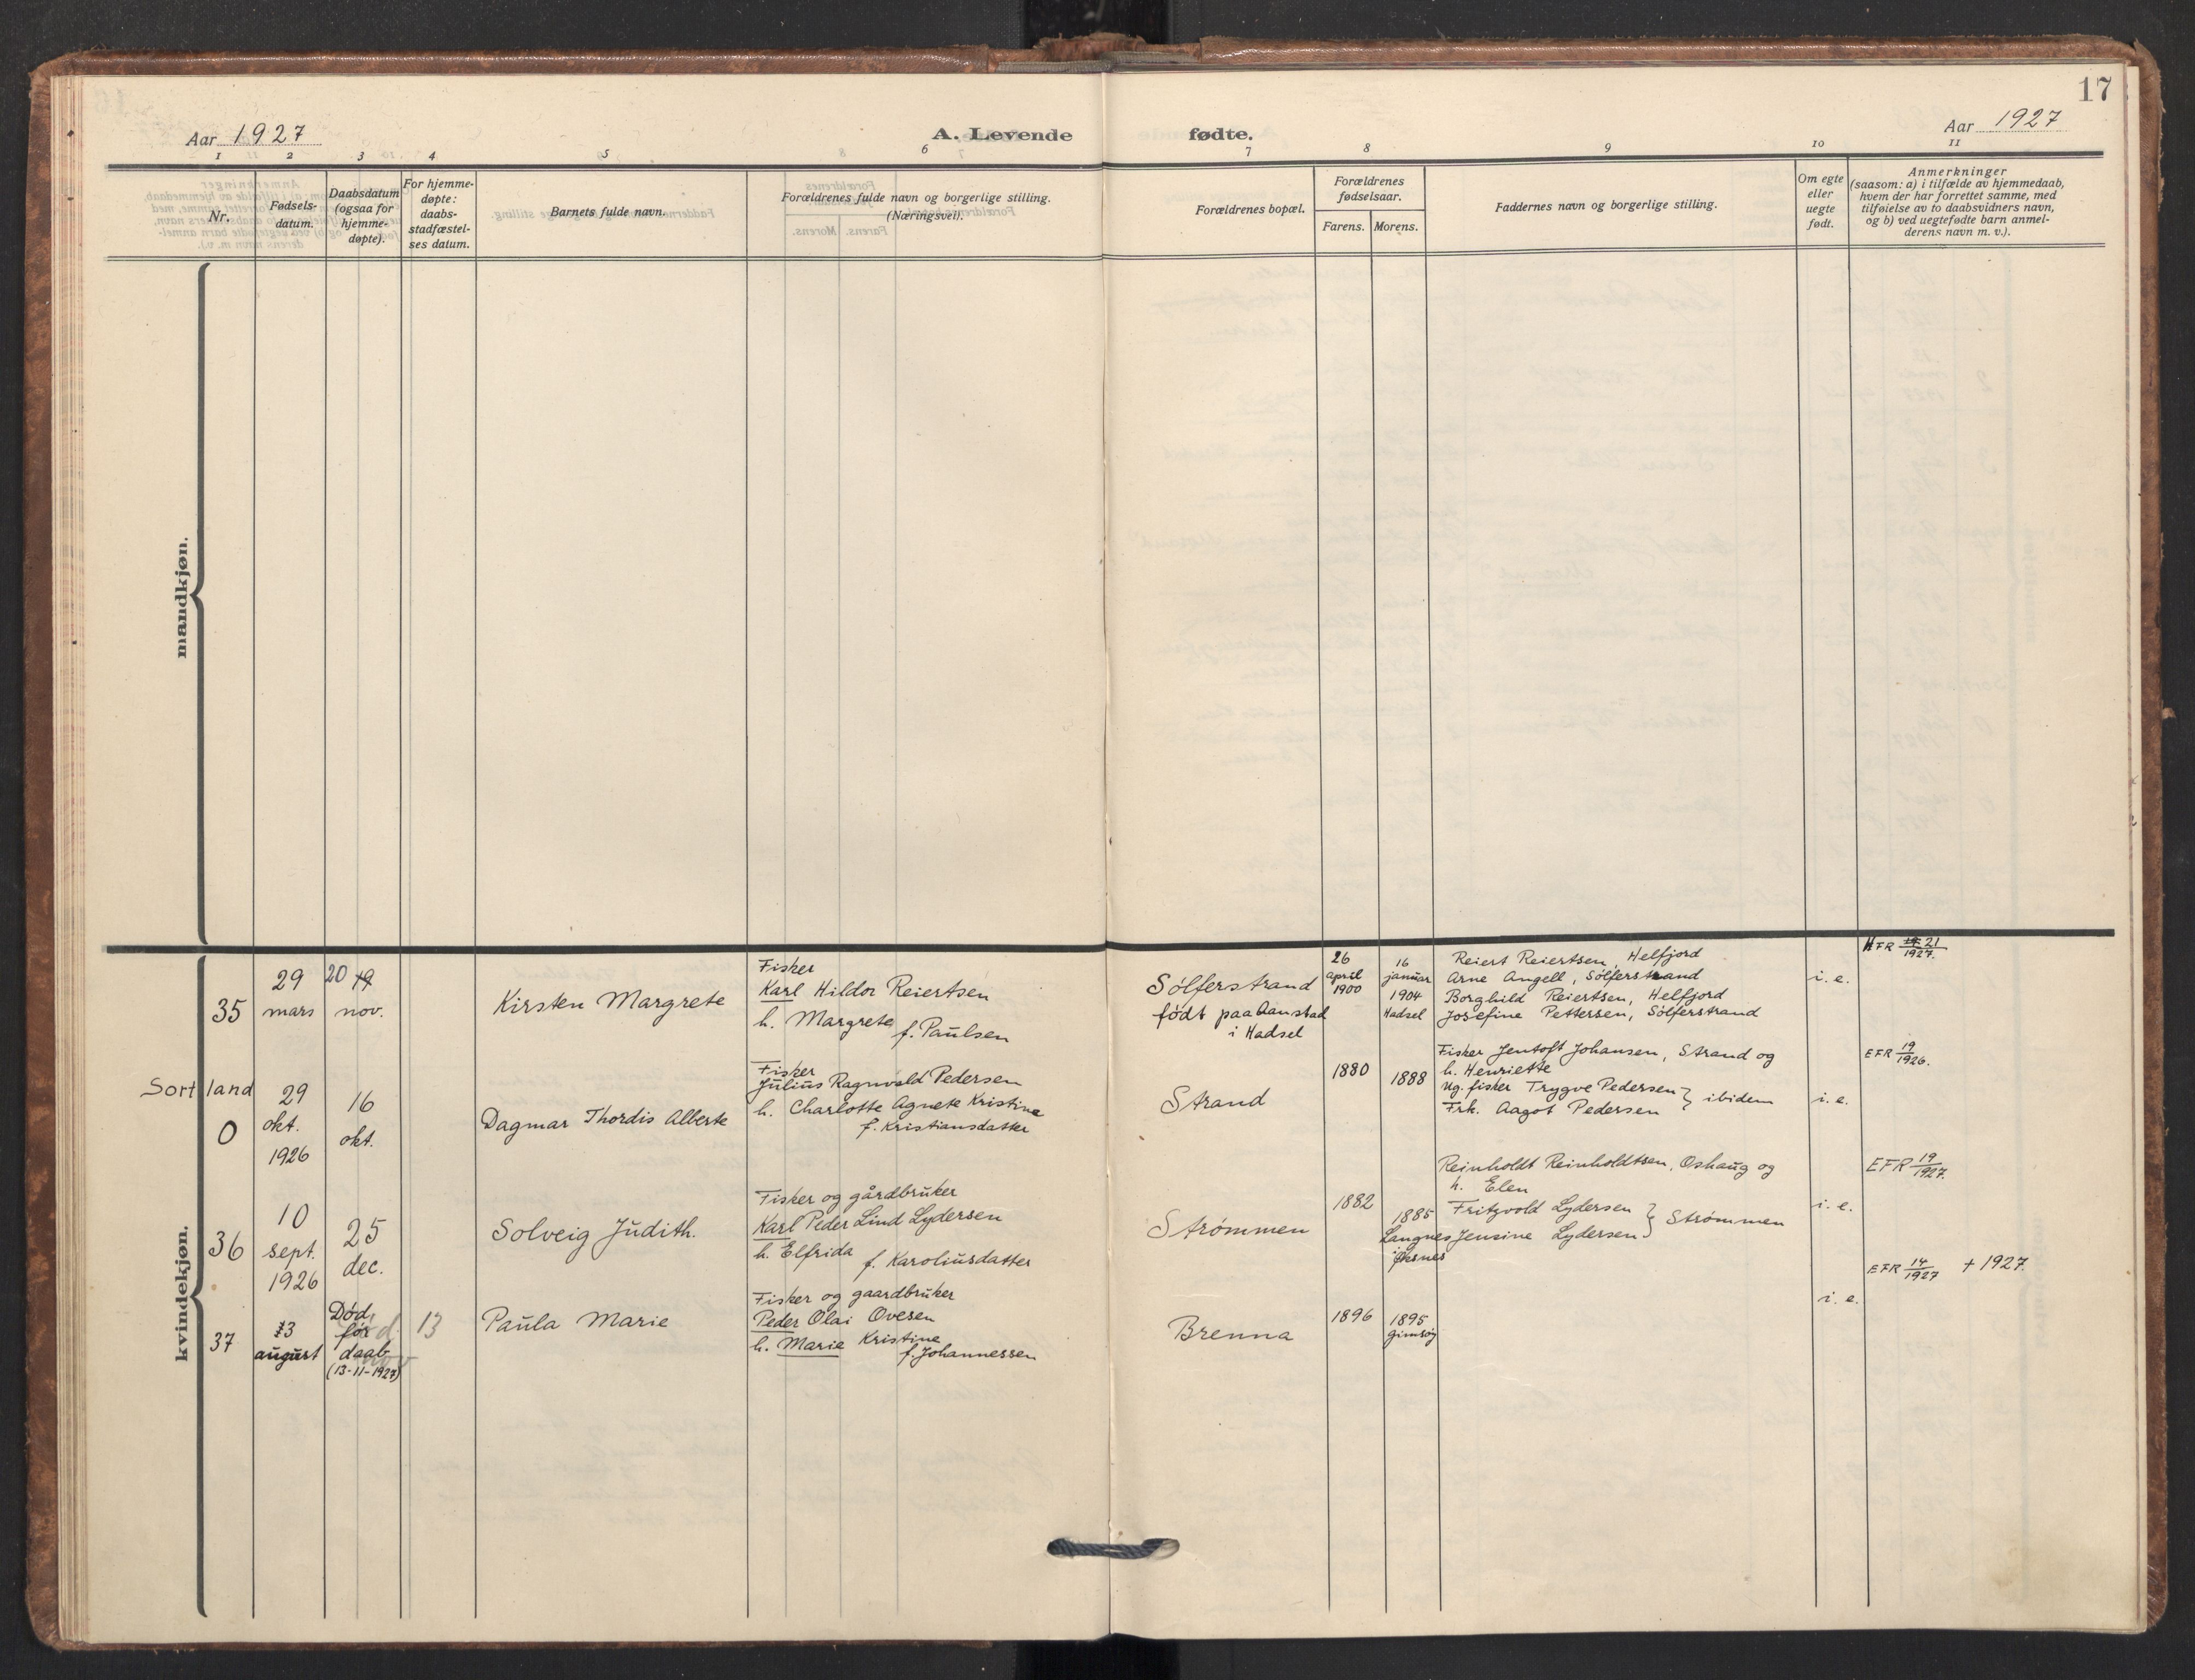 17
Aar 1927
A. Levende fødte.
Aar 1927
1 2 3 4 5 6 7 8 9 10 11
Nr.
Fødsels-
datum.
Daabsdatum
(ogsaa for
hjemme-
døpte).
For hjemme-
døpte:
daabs-
stadfæstel-
ses datum.
Barnets fulde navn.
Forældrenes fulde navn og borgerlige stilling.
(Næringsvei).
Forældrenes bopæl.
Forældrenes
fødselsaar.
Farens. Morens.
Faddernes navn og borgerlige stilling.
Om egte
eller
uegte
født.
Anmerkninger
(saasom: a) i tilfælde av hjemmedaab,
hvem der har forrettet samme, med
tilføielse av to daabsvidners navn,
og b) ved uegtefødte barn anmel-
derens navn m. v.).
mandkjøn.
kvindekjøn.
35
29
mars
20 19
nov.
Kirsten Margrete
Fisker
Karl Hildor Reiertsen
h. Margrete
f. Paulsen
Sølferstrand
født paa Aanstad
i Hadsel
26
april
1900
16
januar
1904
Hadsel
Reiert Reiertsen, Helfjord
Arne Angell, Sølferstrand
Borghild Reiertsen, Helfjord
Josefine Pettersen, Sølferstrand
i. e.
HFR 21/1927.
Sortland
0
29
okt.
1926
16
okt.
Dagmar Thordis Alberte
Fisker
Julius Ragnvald Pedersen
h. Charlotte Agnete Kristine
f. Kristiansdatter
Strand
1880
1888
Fisker Jentoft Johansen, Strand og
h. Henriette
Ug. fisker Trygve Pedersen } ibidem
Frk. Aagot Pedersen
i. e.
EFR 19/1926.
36
10
sept.
1926
25
dec.
Solveig Judith.
Fisker og gårdbruker
Karl Peder Lind Lydersen
h. Elfrida
f. Karoliusdatter
Strømmen
1882
1885
Langnes
i Øksnes
Reinholdt Reinholdtsen, Oshaug og
h. Elen
Fritzvold Lydersen } Strømmen
Jensine Lydersen
i. e.
EFR 19/1927.
37
13
august
Død
før
daab
(13-11-1927)
13
Paula Marie
Fisker og gaardbruker
Peder Olai Ovesen
h. Marie Kristine
f. Johannessen
Brenna
1896
1895
Gimsøy
i. e.
EFR 14/1927 + 1927.